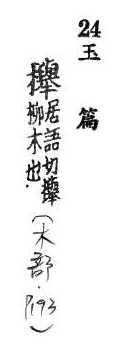 24玉篇
櫸居語切櫸柳木也.(木部·P193)